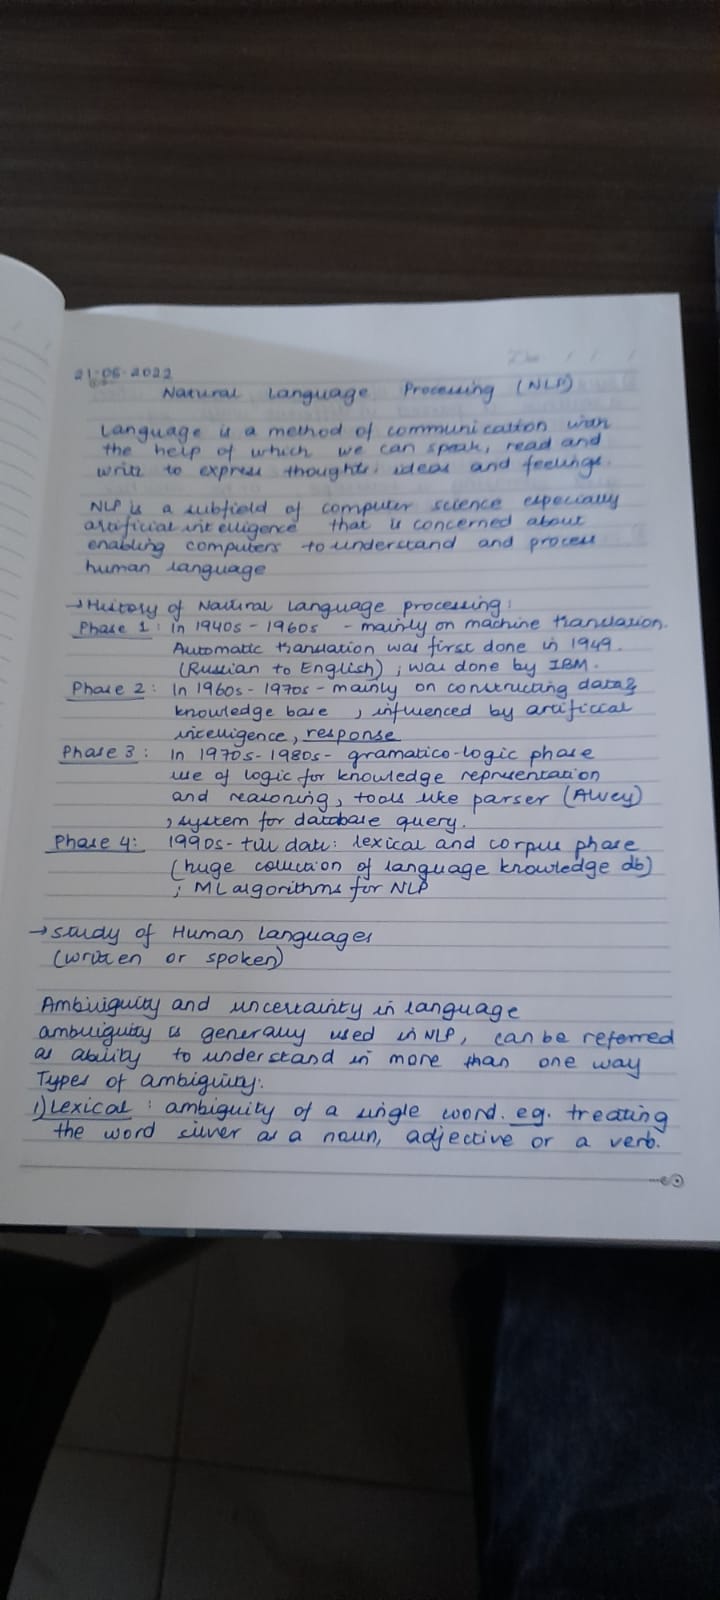 21-06-2022
Natural Language Processing (NLP)
Language is a method of communication with
the help of which we can speak, read and
write to express thoughts, ideas and feelings.
NLP is a subfield of computer science especially
artificial intelligence that is concerned about
enabling computers to understand and process
human language
→ History of Natural Language processing:
Phase 1: In 1940s - 1960s - mainly on machine translation.
Automatic translation was first done in 1949.
(Russian to English) ; was done by IBM.
Phase 2: In 1960s - 1970s - mainly on constructing data &
knowledge base , influenced by artificial
intelligence, response
Phase 3: In 1970s - 1980s - gramatico-logic phase
use of logic for knowledge representation
and reasoning, tools like parser (Alvey)
, system for database query.
Phase 4: 1990s - till date: lexical and corpus phase
(huge collection of language knowledge db)
; ML algorithms for NLP
→ Study of Human Languages
(written or spoken)
Ambiguity and uncertainty in language
ambiguity is generally used in NLP, can be referred
as ability to understand in more than one way
Types of ambiguity:
1) Lexical : ambiguity of a single word. eg. treating
the word silver as a noun, adjective or a verb.